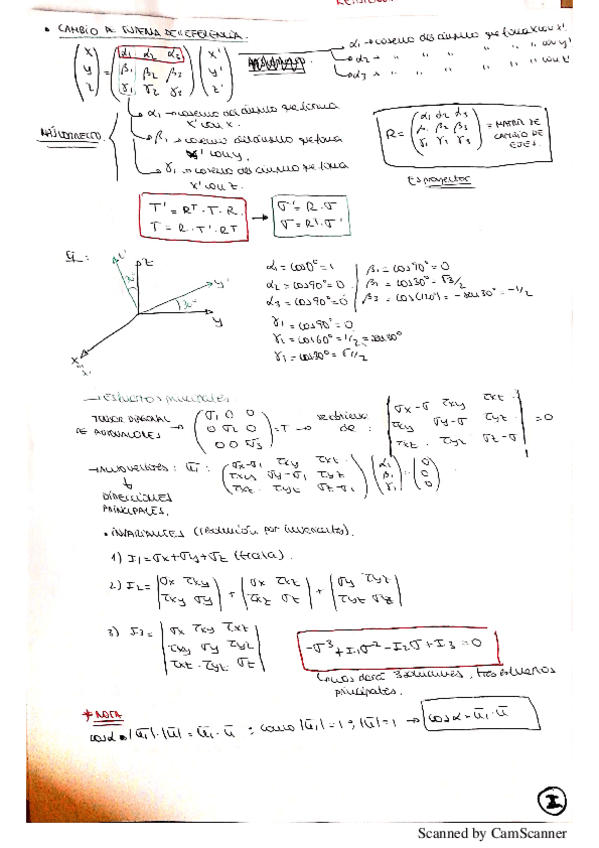 • CAMBIO DE SISTEMA DE REFERENCIA.
(x y z) = (α1 α2 α3 / β1 β2 β3 / γ1 γ2 γ3) (x' y' z')
α1 → coseno del ángulo que forma x con x'.
α2 → " " " " " con y'.
α3 → " " " " " con z'
α1 → coseno del ángulo que forma
x' con x.
β1 → coseno del ángulo que forma
x' con y.
γ1 → coseno del ángulo que forma
x' con z.
R = (α1 α2 α3 / β1 β2 β3 / γ1 γ2 γ3) = MATRIZ DE CAMBIO DE EJES.
T' = R^T · T · R.
T = R · T' · R^T
Ej:
z' z y' y x
30°
α1 = cos0° = 1
α2 = cos90° = 0
α3 = cos90° = 0
β1 = cos90° = 0
β2 = cos30° = √3/2
β3 = cos(120°) = -sen30° = -1/2
γ1 = cos90° = 0
γ2 = cos60° = 1/2 = sen30°
→ ESFUERZOS PRINCIPALES
TENSOR DIAGONAL
DE AUTOVALORES → (σ1 0 0 / 0 σ2 0 / 0 0 σ3) = T →
de : |σx-σ τxy τxz / τxy σy-σ τyz / τxz τyz σz-σ| = 0
→ AUTOVECTORES : ū1 : (σx-σ1 τxy τxz / τxy σy-σ1 τyz / τxz τyz σz-σ1) (α1 β1 γ1) = (0 0 0)
DIRECCIONES
PRINCIPALES.
• INVARIANTES (resolución por invariantes).
1) I1 = σx+σy+σz (traza).
2) I2 = |σx τxy / τxy σy| + |σx τxz / τxz σz| + |σy τyz / τyz σz|
3) I3 = |σx τxy τxz / τxy σy τyz / τxz τyz σz|
-σ³ + I1σ² - I2σ + I3 = 0
nos dará 3 soluciones, tres esfuerzos
principales.
* NOTA
cosα · |ū1| · |ū| = ū1 · ū ; como |ū1| = 1 ; |ū| = 1 → cosα = ū1 · ū
I
Scanned by CamScanner